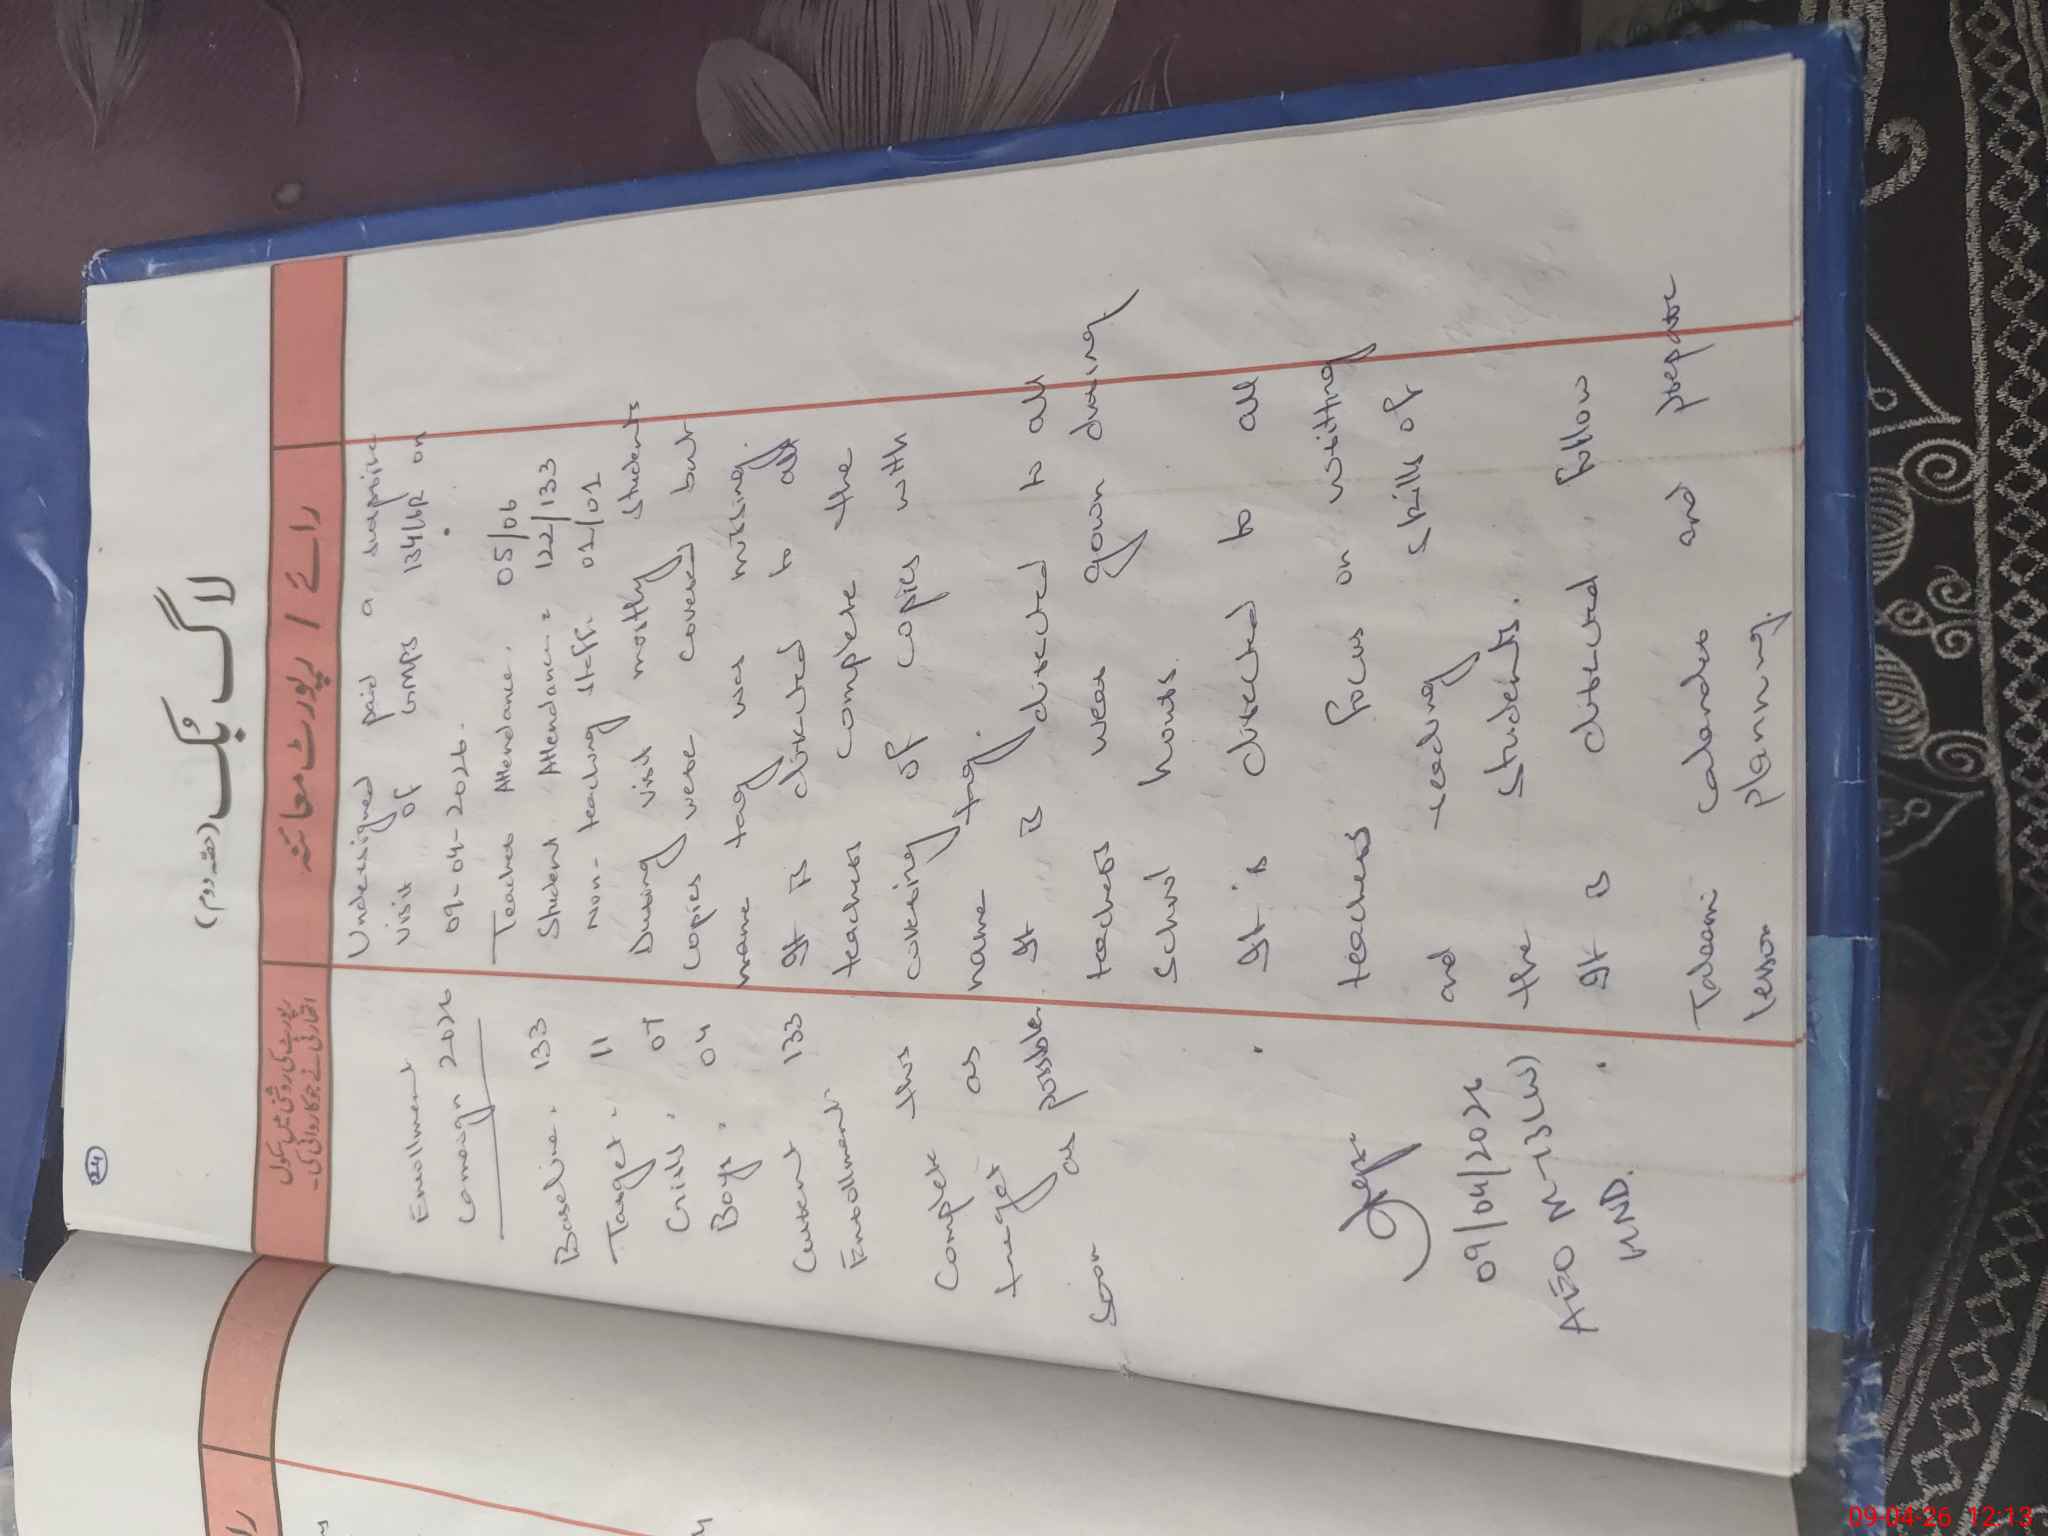 24
لاگ بُک (حصہ دوم)
رائے / رپورٹ معائنہ
رپورٹ کی روشنی میں سکول
اتھارٹی نے جو کاروائی کی۔
Undersigned paid a surprise
visit of GMPS 134/6R on
09-04-2026.
Teacher Attendance. 05/06
Student Attendance = 122/133
Non-teaching staff. 01/01
During visit mostly students
copies were covered but
name tag was missing.
It is directed to all
teachers complete the
covering of copies with
name tag.
It is directed to all
teachers wear gown during
school hours.
It is directed to all
teachers focus on writting
and reading skills of
the students.
It is directed follow
Taleemi calander and prepare
lesson planning.
Enrollment
Campaign 2026
Baseline. 133
Target. 11
Girls. 07
Boys. 04
Current
Enrollment. 133
Complete this
target as
soon as possible.
09/04/2026
AEO M-13(W)
HND.
09-04-26 12:13